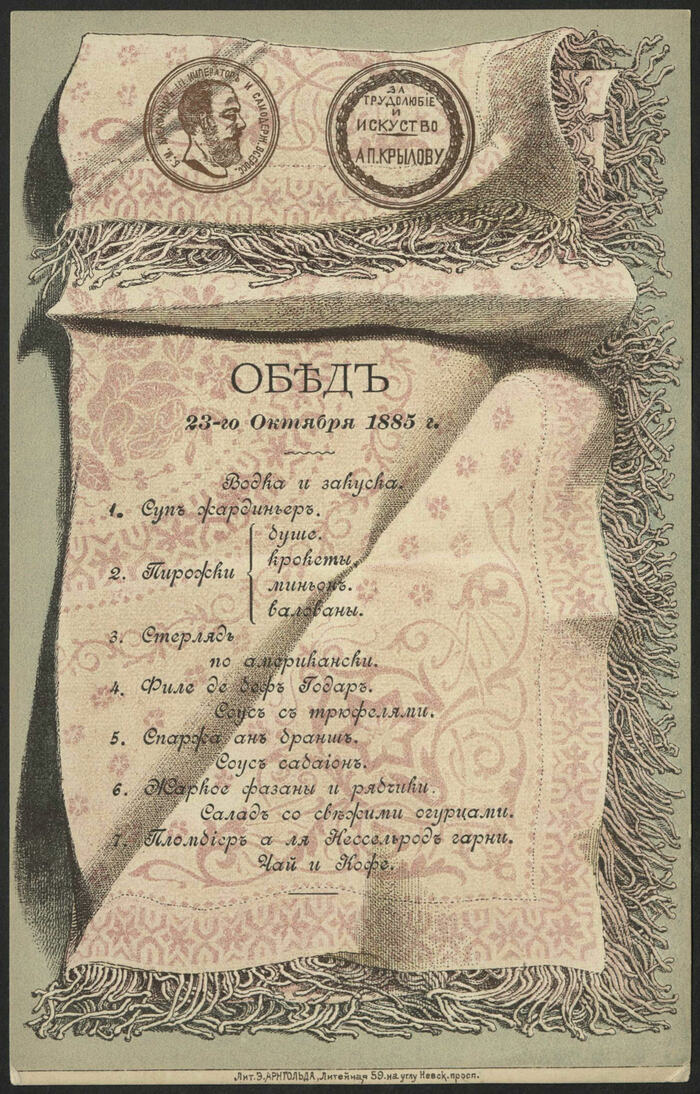 Б. М. АЛЕКСАНДРЪ III ИМПЕРАТОРЪ И САМОДЕРЖ. ВСЕРОСС.
ЗА
ТРУДОЛЮБІЕ
И
ИСКУСТВО
А.П.КРЫЛОВУ
ОБѢДЪ
23-го Октября 1885 г.
Водка и закуска.
1. Супъ жардиньеръ.
2. Пирожки
буше.
крокеты.
миньонъ.
валованы.
3. Стерлядь
по американски.
4. Филе де бефъ Годаръ.
Соусъ съ трюфелями.
5. Спаржа анъ браншъ.
Соусъ сабаіонъ.
6. Жаркое фазаны и рябчики.
Саладъ со свѣжими огурцами.
7. Пломбіеръ а ля Нессельродъ гарни.
Чай и Кофе.
Лит. Э. АРНГОЛЬДА, Литейная 59. на углу Невск. просп.